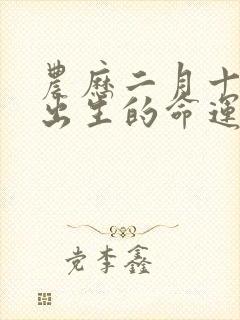 農歷二月十
出生的命運
党李鑫